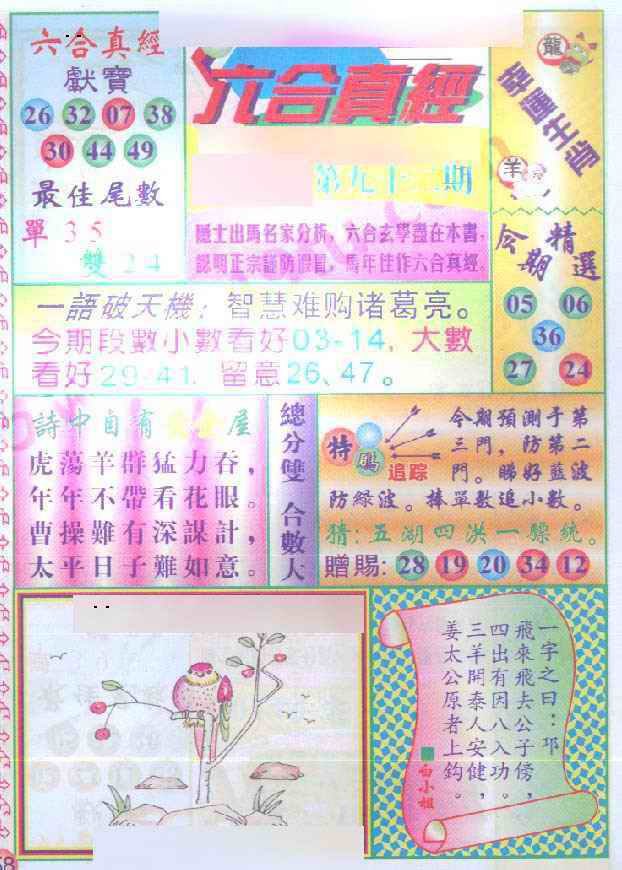 六合真經
獻寶
26 32 07 38
30 44 49
最佳尾數
單 3 5
雙 2 4
六合真經
第九十二期
隱士出馬名家分析，六合玄學盡在本書，
認明正宗謹防假冒，馬年佳作六合真經。
龍
幸運生肖
羊
今期
精選
05 06
36
27 24
一語破天機：智慧难购诸葛亮。
今期段數小數看好03-14，大數
看好29-41，留意26、47。
詩中自有
屋
虎蕩羊群猛力吞，
年年不帶看花眼。
曹操難有深謀計，
太平日子難如意。
總分雙 合數大
特
碼
追踪
今期預測于第
三門，防第二
門。睇好藍波
防綠波。棒單數追小數。
猜：五湖四洪一縣統。
贈賜：28 19 20 34 12
一字之曰：邛
飛來飛去公子傍，
四出有因八入功。
三羊開泰人安健，
姜太公原者上鈎。
白小姐
58